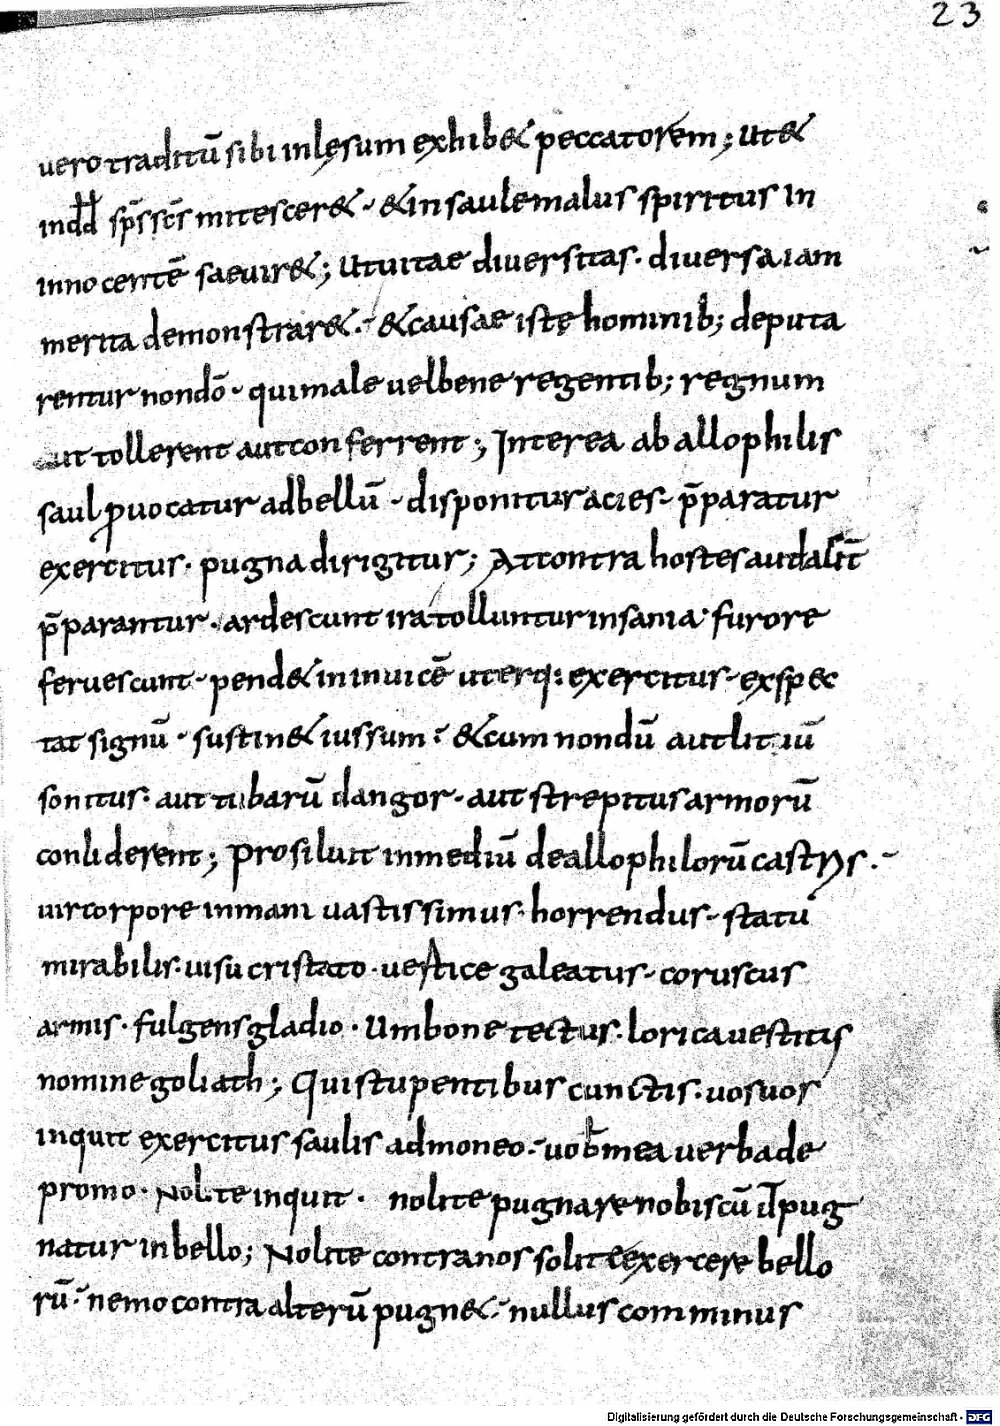 23
uero traditū sibi inlęsum exhib& peccatorem; Ut&
in dd̄ sp̄s sc̄s mitescer& · & in saule malus spiritus in
innocentē saeuir&; Ut uitae diuersitas · diuersa iam
merita demonstrar& · & causae istę hominib; deputa
rentur nondō · qui male uel bene regentib; regnum
aut tollerent aut conferrent; Interea ab allophilis
saul ꝓuocatur ad bellū · disponitur acies · p̄paratur
exercitus · pugna dirigitur; At contra hostes
p̄parantur · ardescunt ira tolluntur insania · furore
feruescunt · pend& in inuicē uterq: exercitus · exspec
tat signū · sustin& iussum · & cum nondū aut litiū
sonitus · aut tubarū clangor · aut strepitus armorū
conliderent; Prosiluit in mediū de allophilorū castrys ·
uir corpore inmani uastissimus · horrendus · statu
mirabilis · uisu cristato · uertice galeatus · coruscus
armis · fulgens gladio · Umbone tectus · lorica uestitus
nomine goliath; Qui stupentibus cunctis · uos uos
inquit exercitus saulis admoneo · uob mea uerba de
promo · Nolite inquit · nolite pugnare nobiscū pug
natur in bello; Nolite contra nos solite exercere bello
rū · nemo contra alterū pugn& · nullus comminus
Digitalisierung gefördert durch die Deutsche Forschungsgemeinschaft - DFG